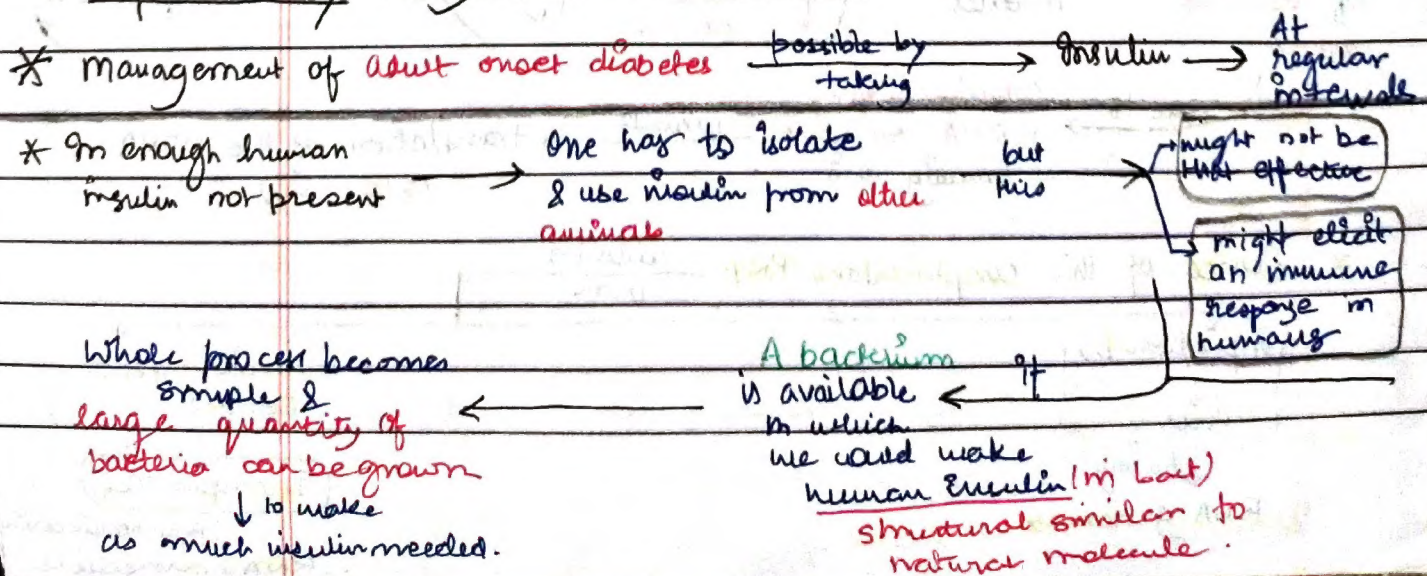 * Management of adult onset diabetes possible by taking → Insulin → At regular intervals
* In enough human
insulin not present
→ One has to isolate
& use insulin from other
animals
but
this
→ might not be
that effective
→ might elicit
an immune
response in
humans
If
A bacterium
is available
in which
we could make
human Insulin (in bact)
structural similar to
natural molecule.
Whole process becomes
simple &
large quantity of
bacteria can be grown
↓ to make
as much insulin needed.